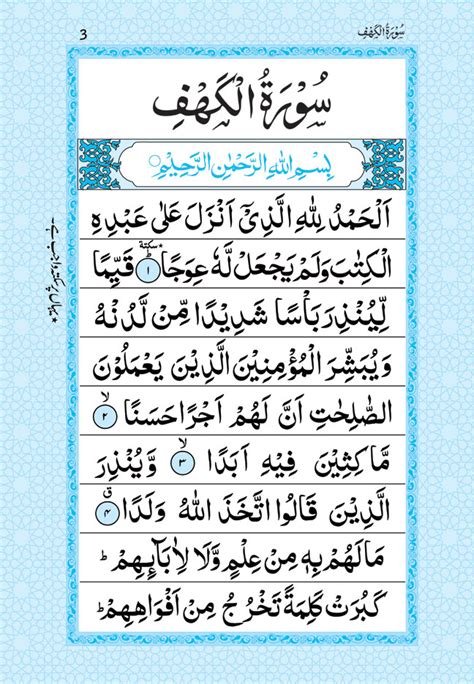 3
سُوْرَةُ الْكَهْفِ
سُوْرَةُ الْكَهْفِ
بِسْمِ اللّٰهِ الرَّحْمٰنِ الرَّحِيْمِ○
اَلْحَمْدُ لِلّٰهِ الَّذِيْۤ اَنْزَلَ عَلٰى عَبْدِهِ
الْكِتٰبَ وَلَمْ يَجْعَلْ لَّهٗ عِوَجًا ۱ سكتة* قَيِّمًا
لِّيُنْذِرَ بَاْسًا شَدِيْدًا مِّنْ لَّدُنْهُ
وَيُبَشِّرَ الْمُؤْمِنِيْنَ الَّذِيْنَ يَعْمَلُوْنَ
الصّٰلِحٰتِ اَنَّ لَهُمْ اَجْرًا حَسَنًا ۲ ۙ
مَّاكِثِيْنَ فِيْهِ اَبَدًا ۳ ۙ وَّيُنْذِرَ
الَّذِيْنَ قَالُوا اتَّخَذَ اللّٰهُ وَلَدًا ۴ ق
مَالَهُمْ بِهٖ مِنْ عِلْمٍ وَّلَا لِاٰبَآئِهِمْ ؕ
كَبُرَتْ كَلِمَةً تَخْرُجُ مِنْ اَفْوَاهِهِمْ ؕ